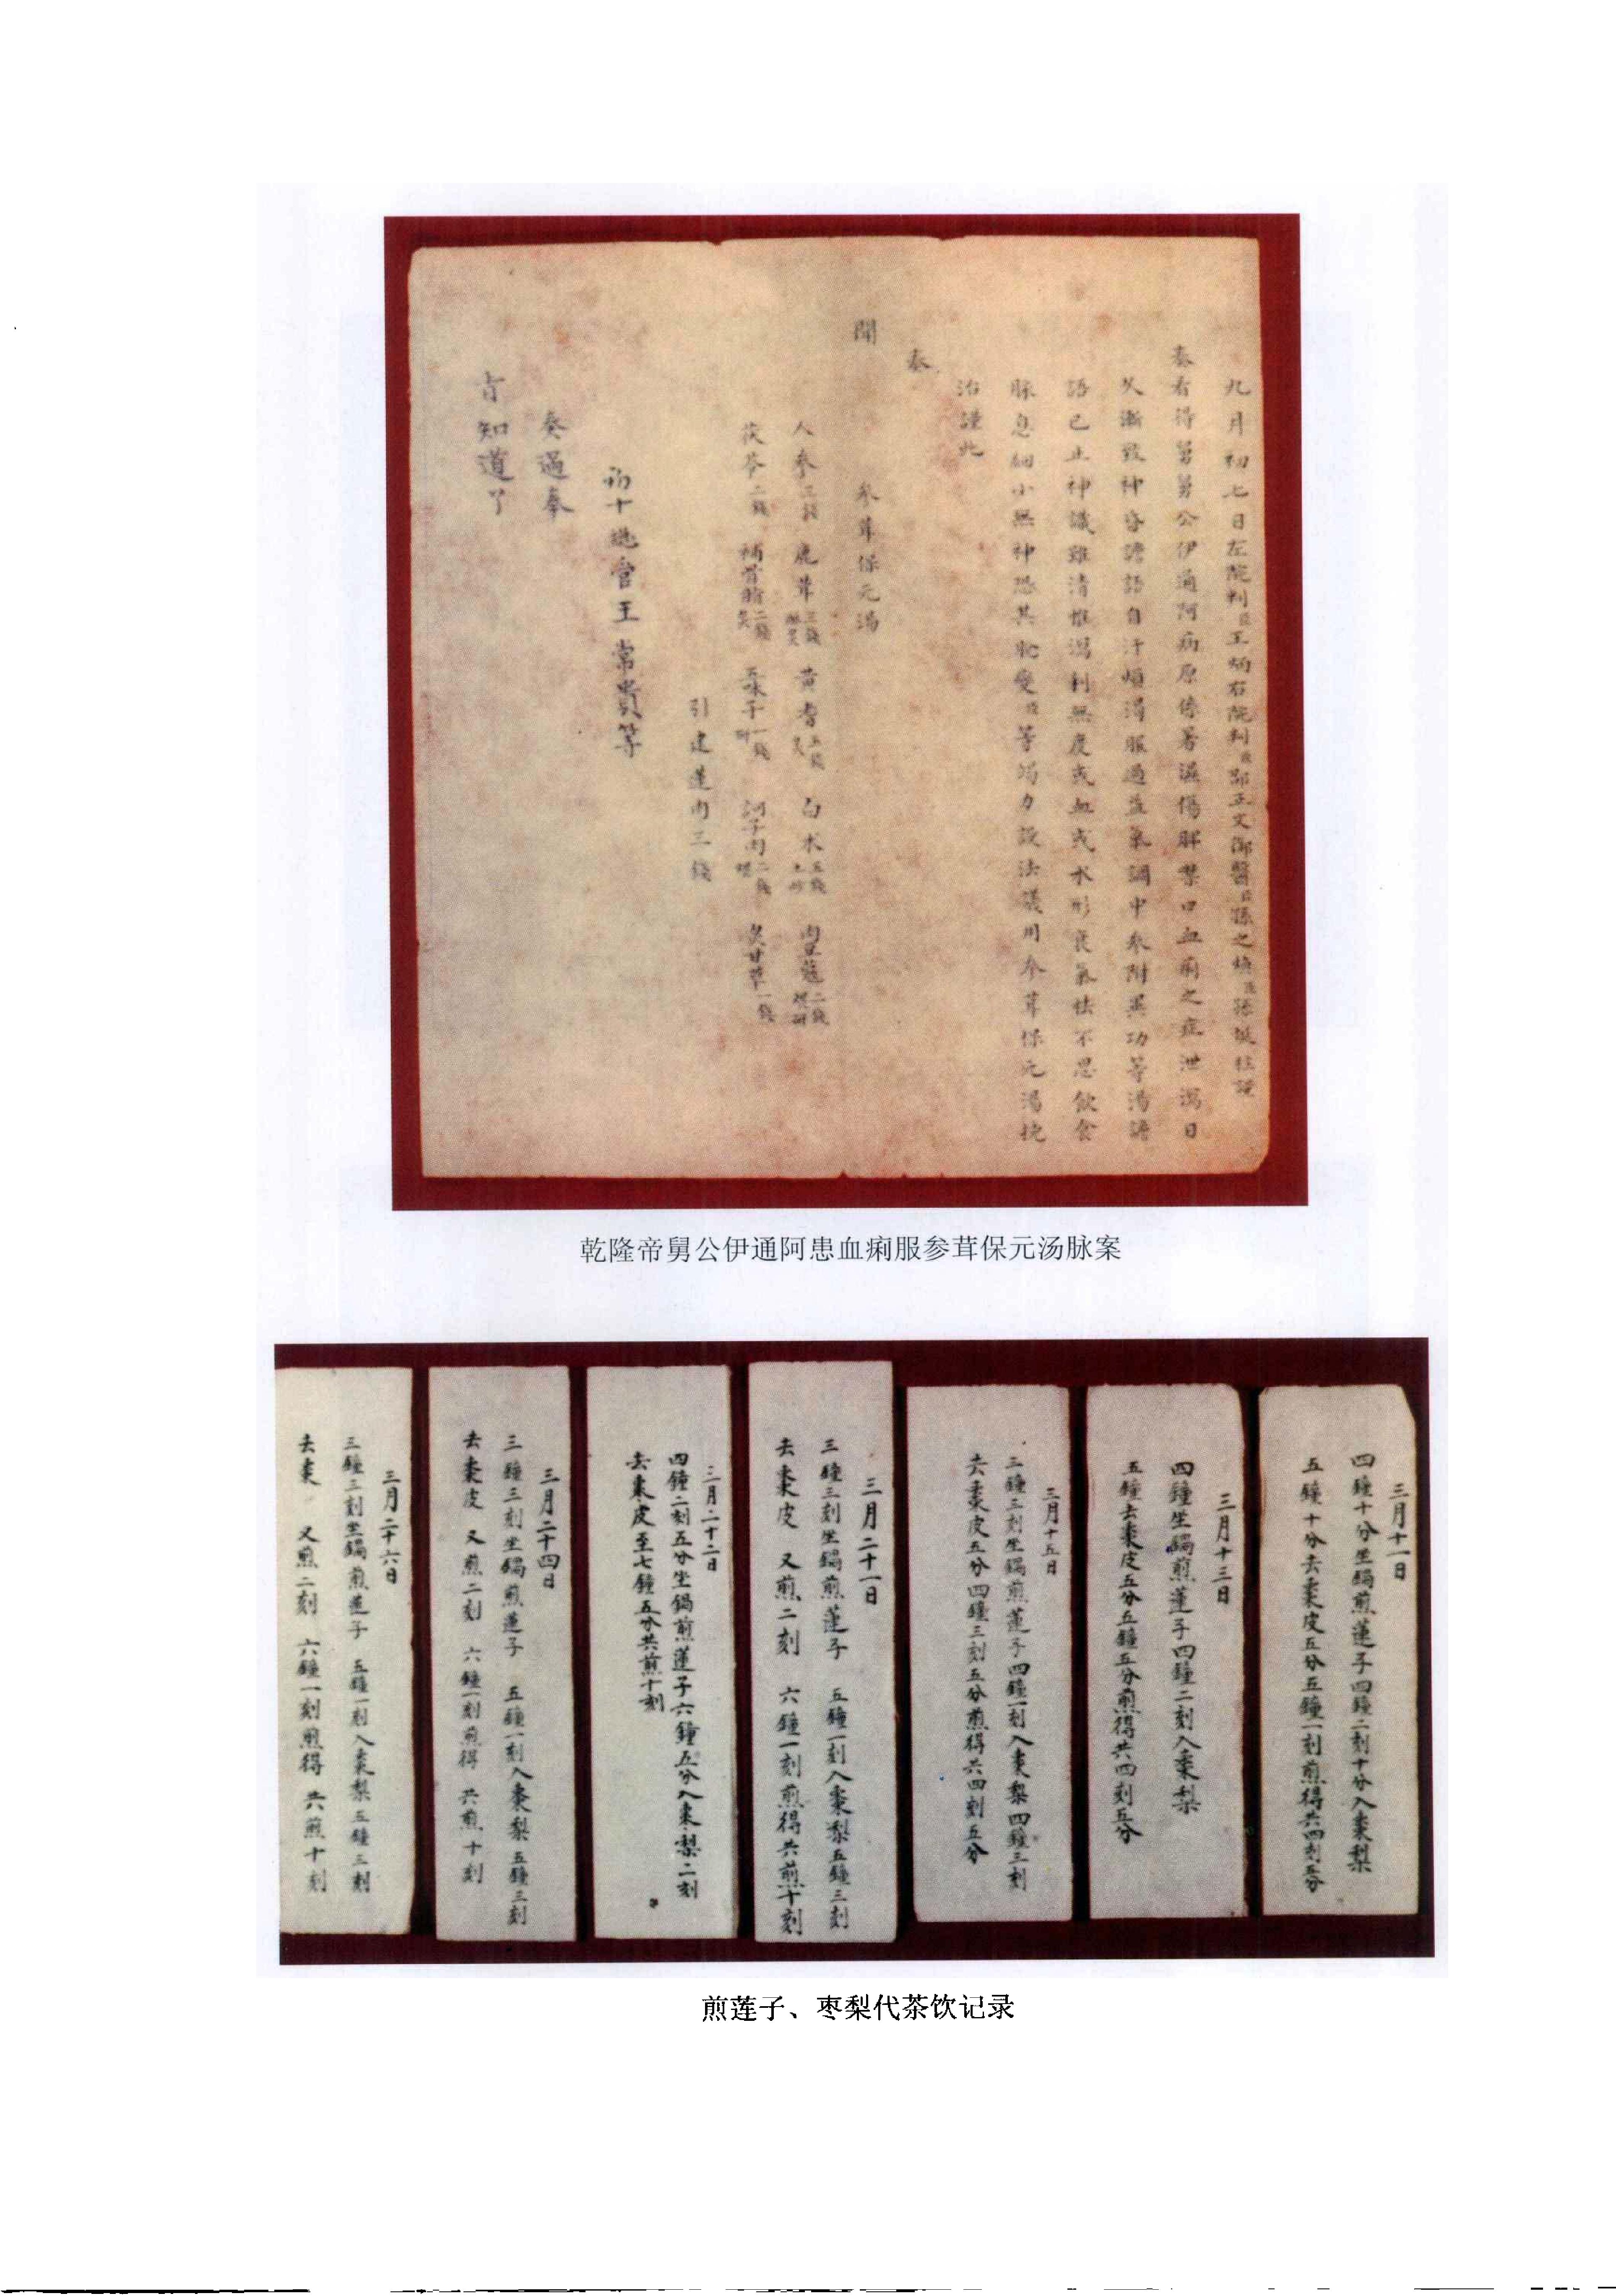 九月初七日左院判臣王炳右院判臣邵正文御醫臣孫之臣張謹
奏看得舅舅公伊通阿病原係著濕傷脾禁口血痢之症泄瀉日
久漸致神昏譫語自汗煩渴服過益氣調中參附異功等湯譫
語已止神識雖清惟瀉利無度或血或水形衰氣怯不思飲食
脉息細小無神恐其脫變臣等竭力設法議用參茸保元湯挽
治謹此
奏
聞
參茸保元湯
人參三錢 鹿茸三錢酥炙 黃耆五錢炙 白朮五錢土炒 肉豆蔻二錢煨研
茯苓二錢 補骨脂二錢炒 五味子一錢研 訶子肉二錢煨 炙甘草一錢
引建蓮肉三錢
初十總管王常貴等
奏過奉
旨知道了
乾隆帝舅公伊通阿患血痢服参茸保元汤脉案
三月十一日
四鐘十分坐鍋煎蓮子四鐘二刻十分入棗梨
五鐘十分去棗皮五分五鐘一刻煎得共四刻五分
三月十三日
四鐘坐鍋煎蓮子四鐘二刻入棗梨
五鐘去棗皮五分五鐘五分煎得共四刻五分
三月十五日
三鐘三刻坐鍋煎蓮子四鐘一刻入棗梨四鐘三刻
去棗皮五分四鐘三刻五分煎得共四刻五分
三月二十一日
三鐘三刻坐鍋煎蓮子 五鐘一刻入棗梨五鐘三刻
去棗皮 又煎二刻 六鐘一刻煎得共煎十刻
三月二十二日
四鐘二刻五分坐鍋煎蓮子六鐘五分入棗梨二刻
去棗皮至七鐘五分共煎十刻
三月二十四日
三鐘三刻坐鍋煎蓮子 五鐘一刻入棗梨五鐘三刻
去棗皮 又煎二刻 六鐘一刻煎得 共煎十刻
三月二十六日
三鐘三刻坐鍋煎蓮子 五鐘一刻入棗梨五鐘三刻
去棗 又煎二刻 六鐘一刻煎得 共煎十刻
煎莲子、枣梨代茶饮记录